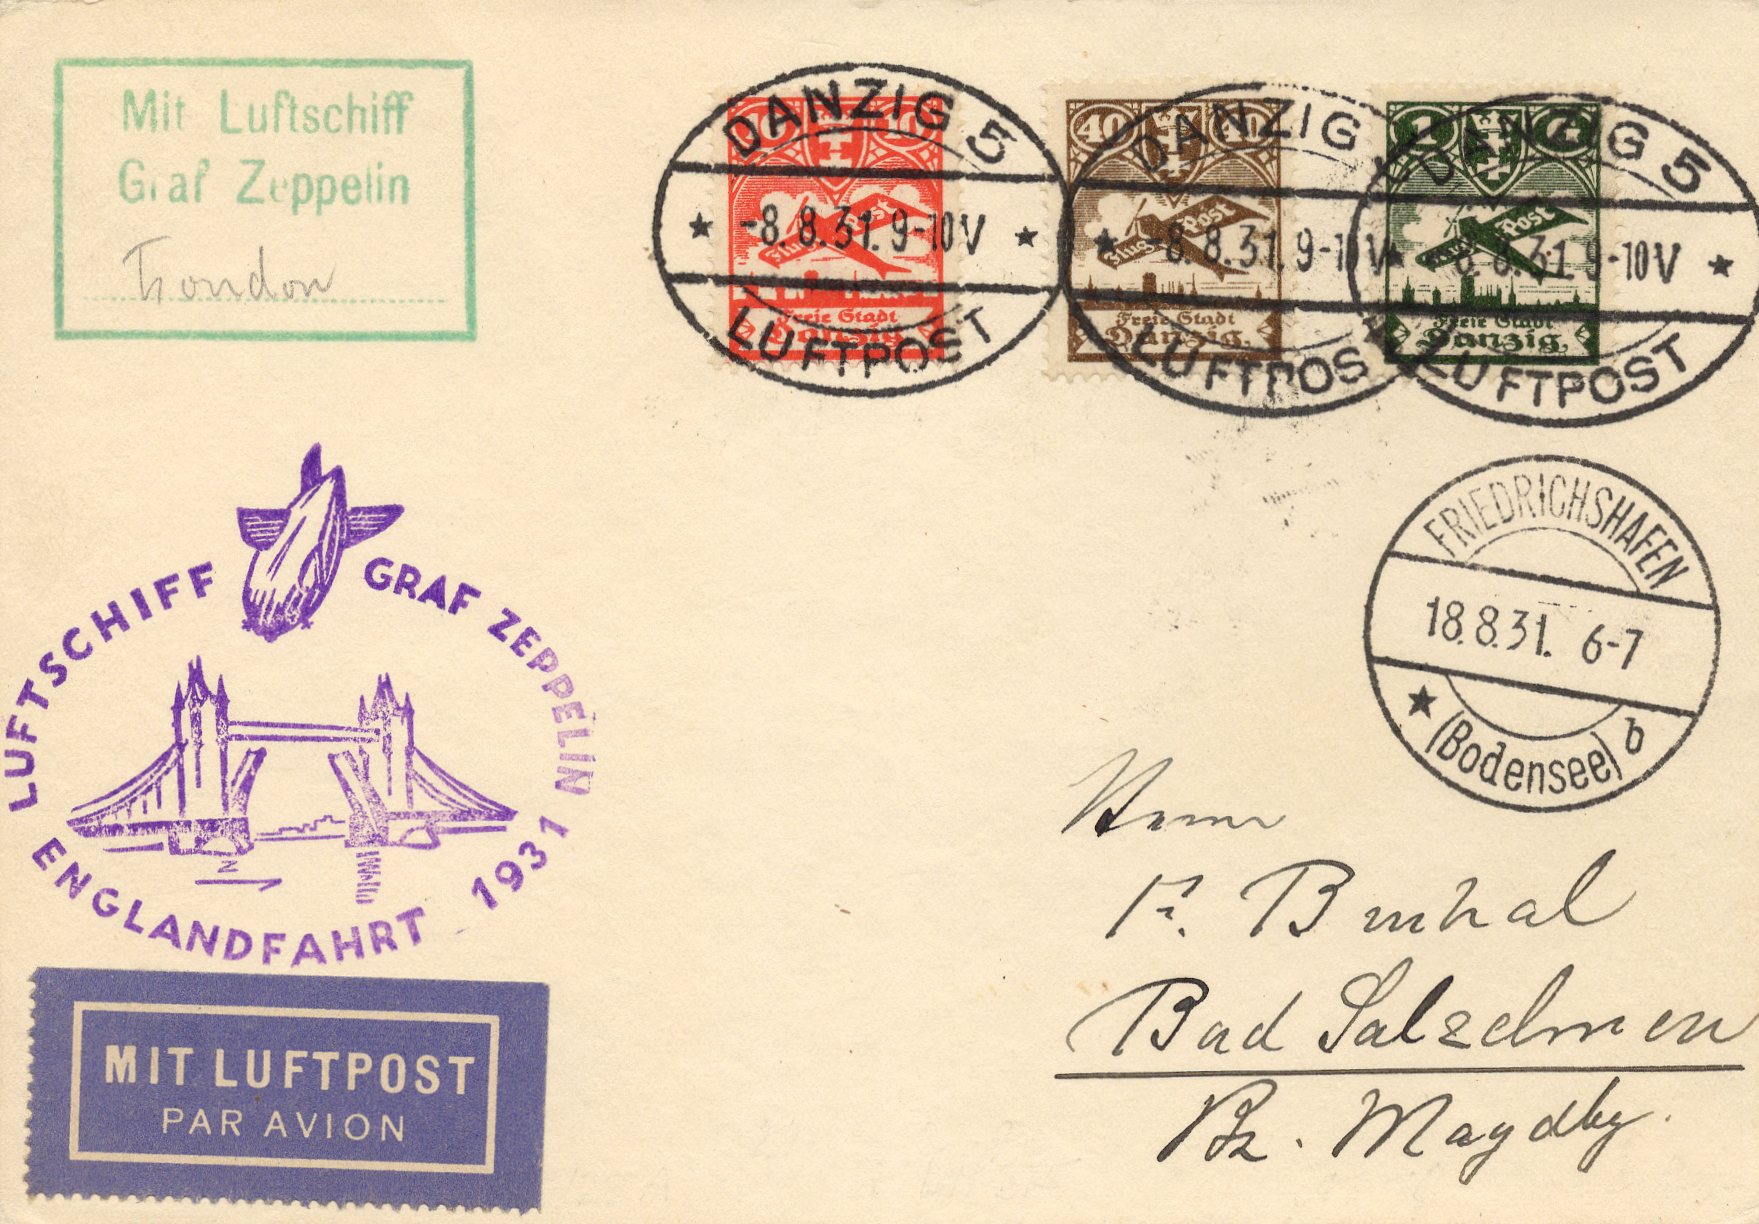 Mit Luftschiff
Graf Zeppelin
London
DANZIG 5
-8.8.31.9-10V
LUFTPOST
10 10
Flug Post
Freie Stadt
Danzig
DANZIG
-8.8.31.9-10V
LUFTPOST
40 40
Flug Post
Freie Stadt
Danzig.
DANZIG 5
8.8.31.9-10V
LUFTPOST
1
Flug Post
Freie Stadt
Danzig.
FRIEDRICHSHAFEN
18.8.31. 6-7
(Bodensee) b
LUFTSCHIFF GRAF ZEPPELIN
ENGLANDFAHRT 1931
MIT LUFTPOST
PAR AVION
Herrn
Bad Salzelmen
Bz. Magdbg.